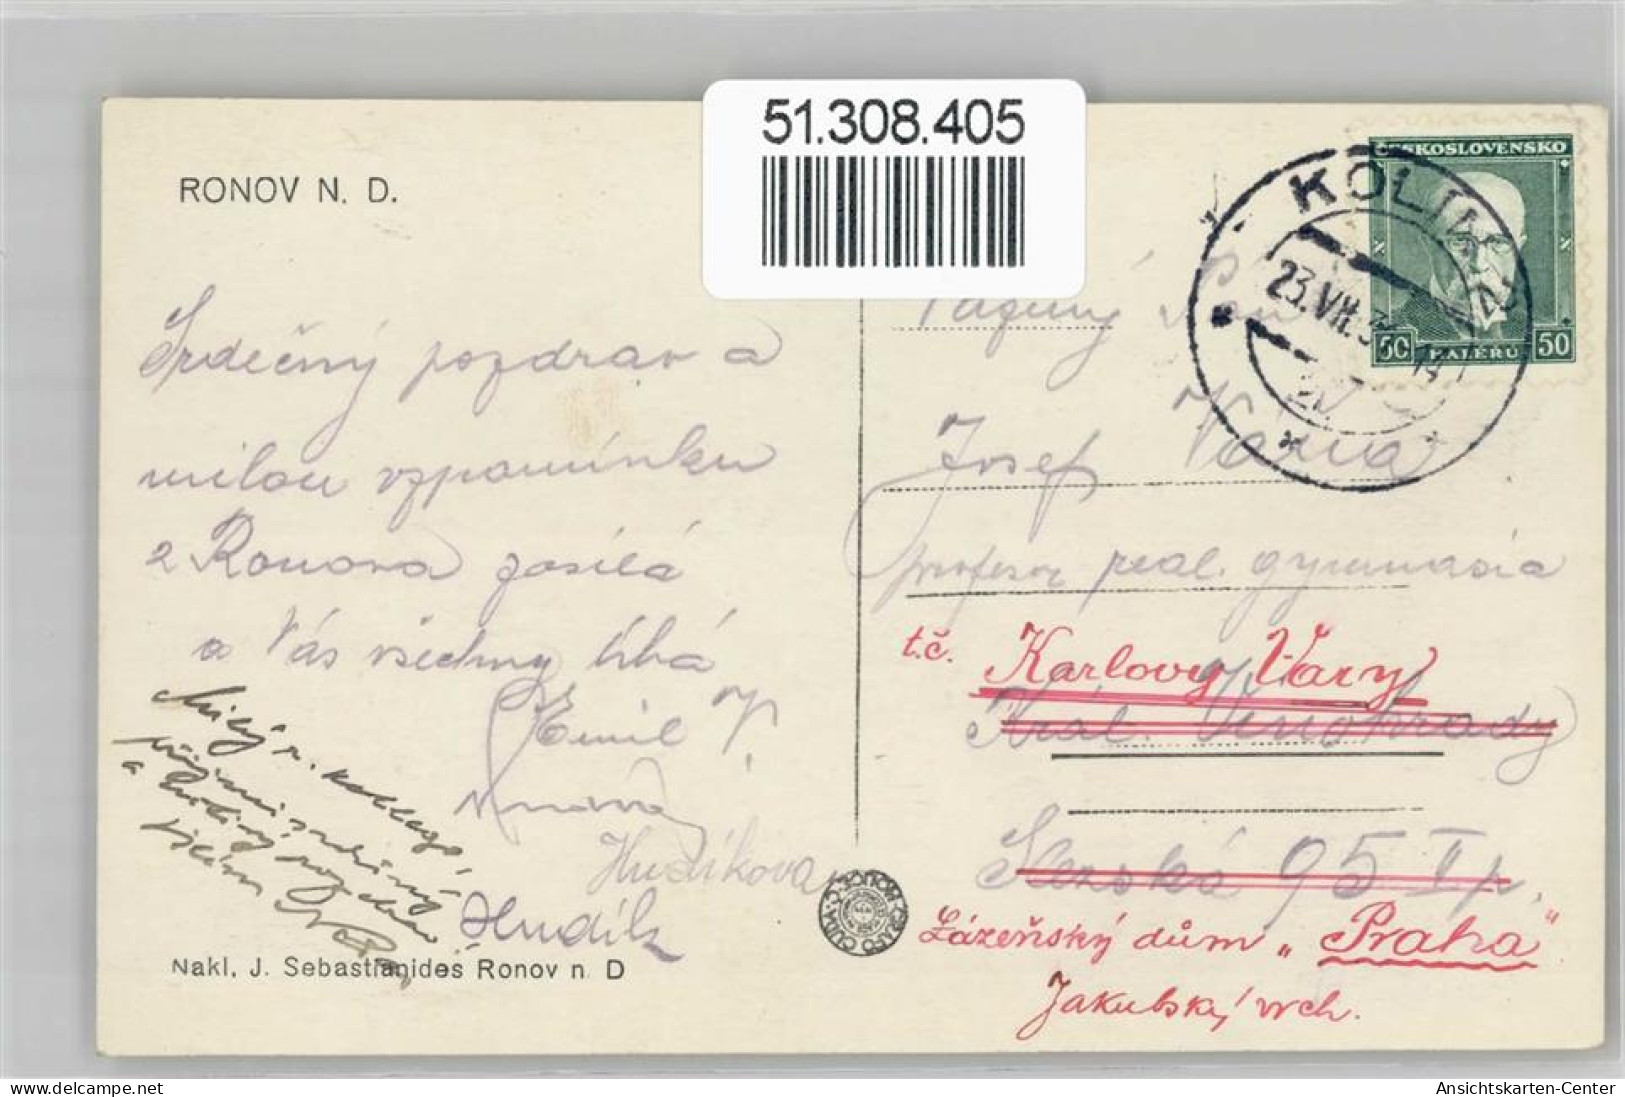 51.308.405
RONOV N. D.
ČESKOSLOVENSKO
KOLÍN
23.VII.3
50 HALÉŘŮ 50
Srdečný pozdrav a
milou vzpomínku
z Ronova zasílá
a Vás všechny líbá
Emil V.
Hudíková
Hudík
Milý p. kollego,
a
Vážený Pan
Josef Vázna
profesor real. gymnasia
t.č. Karlovy Vary
Král. Vinohrady
95 I p.
Lázeňský dům „Praha“
Jakubský vrch.
Nakl. J. Sebastianides Ronov n D
delcampe.net
Ansichtskarten-Center